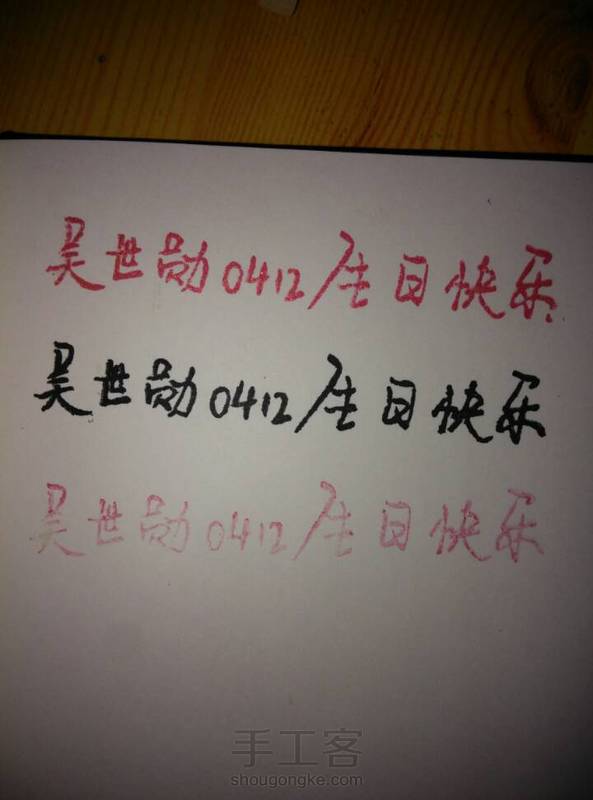 吴世勋0412生日快乐
吴世勋0412生日快乐
吴世勋0412生日快乐
手工客
shougongke.com